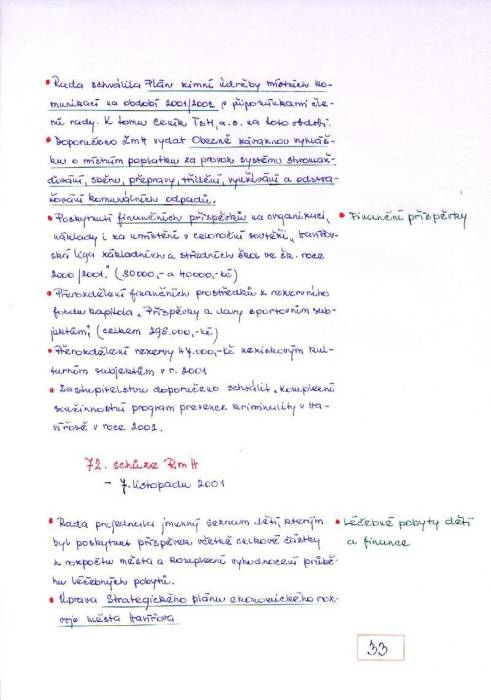 • Rada schválila Plán zimní údržby místních ko-
munikací na období 2001/2002 s připomínkami čle-
nů rady. K tomu Ceník TSH, a.s. na toto období.
• Doporučeno ZMH vydat Obecně závaznou vyhláš-
ku o místním poplatku za provoz systému shromaž-
ďování, sběru, přepravy, třídění, využívání a odstra-
ňování komunálních odpadů.
• Poskytnutí finančních příspěvků na organizaci,
náklady i za umístění v celoroční soutěži „Havířov-
ská liga základních a středních škol ve šk. roce
2000/2001." (80000,- a 40000,-Kč)
• Finanční příspěvky
• Přerozdělení finančních prostředků z rezervního
fondu kapitola „Příspěvky a dary sportovním sub-
jektům", (celkem 298.000,-Kč)
• Přerozdělení rezervy 47.000,-Kč neziskovým kul-
turním subjektům v r. 2001
• Zastupitelstvu doporučeno schválit „Komplexní
součinnostní program prevence kriminality v Ha-
vířově v roce 2002.
72. schůze RMH
- 7. listopadu 2001
• Rada projednala jmenný seznam dětí, kterým
byl poskytnut příspěvek včetně celkové částky
z rozpočtu města a komplexní vyhodnocení průbě-
hu léčebných pobytů.
• Léčebné pobyty dětí
a finance
• Úprava Strategického plánu ekonomického roz-
voje města Havířova
33